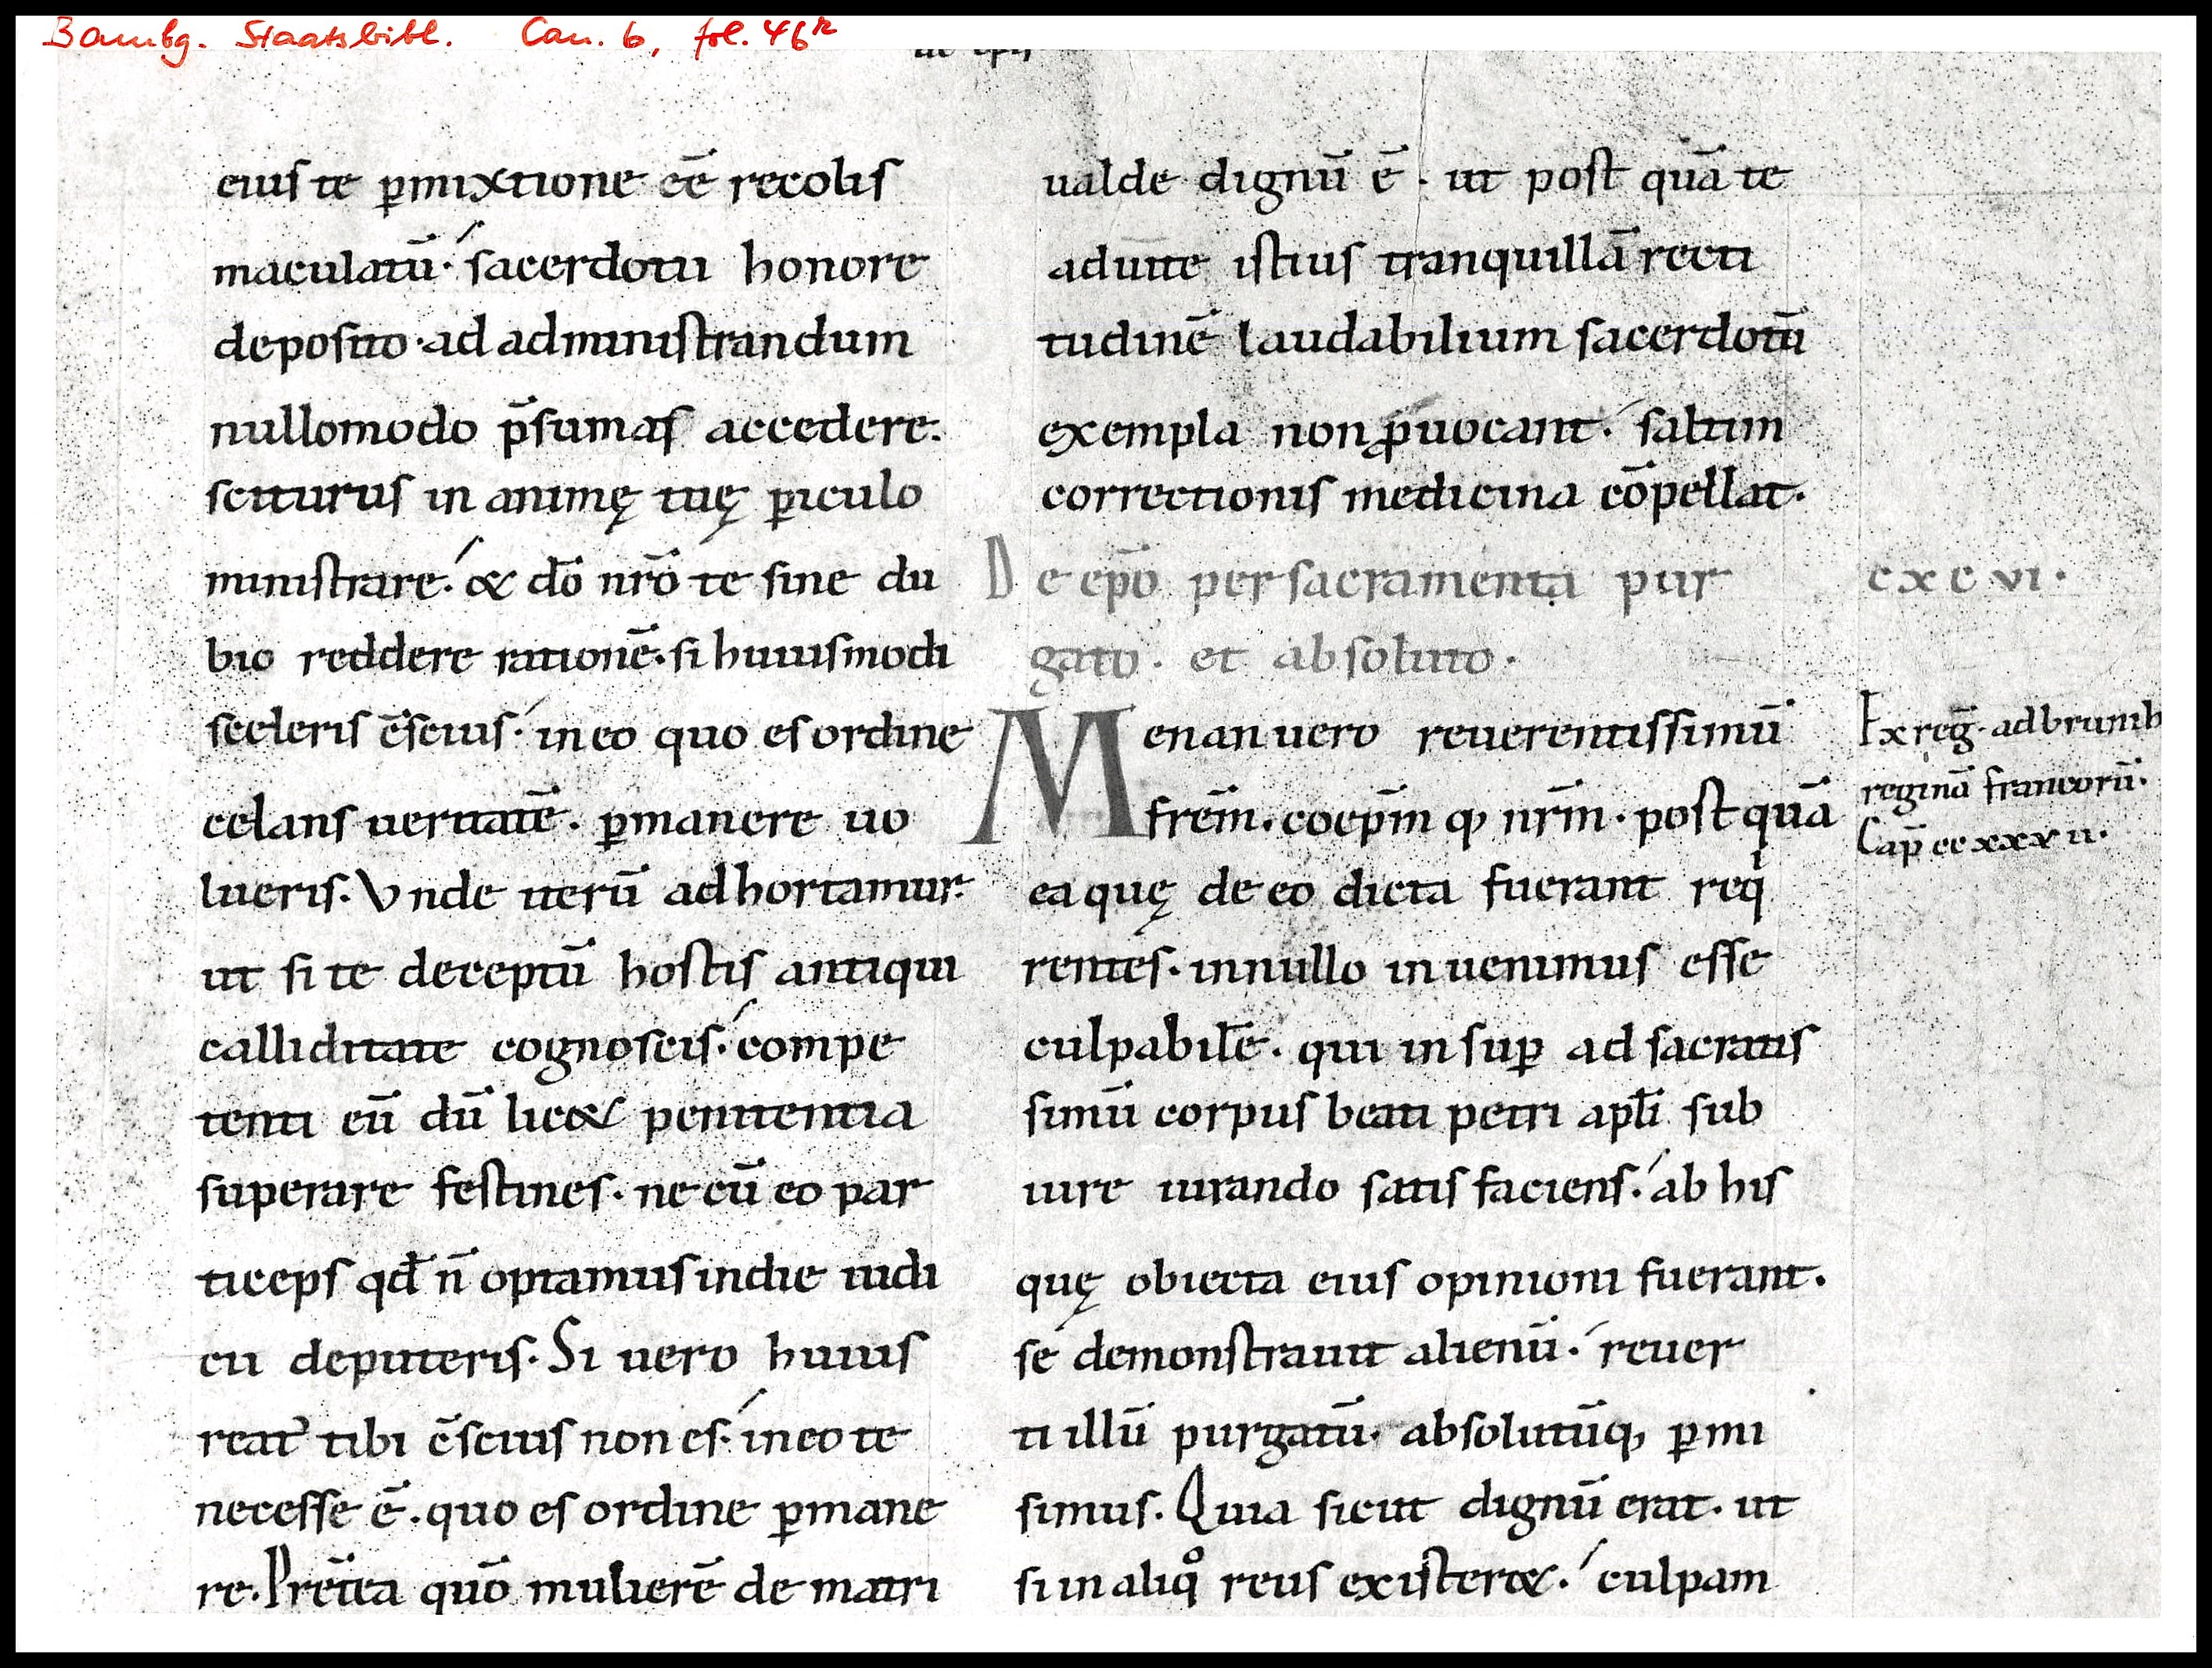 Bambg. Staatsbibl. Can. 6, fol. 46r
eiuſ te p̲mixtione eē̄ recoliſ
maculatū· ſacerdotii honore
depoſito· ad adminiſtrandum
nullomodo p̄ſumaſ accedere.
ſciturus in animę tuę p̲iculo
miniſtrare· & dō nrō te ſine du
bio reddere rationē· ſi huiuſmodi
ſceleriſ c̄ſciuſ· in eo quo eſ ordine
celanſ ueritatē· p̲manere uo
lueriſ. Vnde iterū adhortamur·
ut ſi te deceptū hoſtiſ antiqui
calliditate cognoſciſ· compe
tenti eū dū lic& penitentia
ſuperare feſtineſ· ne cū eo par
ticepſ qd̄ n̄ optamuſ in die iudi
cii deputeriſ. Si uero huiuſ
reatꝰ tibi c̄ſciuſ non eſ· in eo te
neceſſe ē· quo eſ ordine p̲mane
re. Pret̄ea quō mulierē de matri
ualde dignū ē· ut poſt quā te
ad uitę iſtiuſ tranquillā recti
tudinē laudabilium ſacerdotū
exempla non ꝓuocant· ſaltim
correctioniſ medicina cōpellat.
De ep̄o per ſacramenta pur
gato. et abſoluto.
cxcvi.
Menan uero reuerentiſſimū
frem̄. coep̄m q, nrm̄. poſt quā
ea quę de eo dicta fuerant reqi
renteſ. in nullo inuenimuſ eſſe
culpabilē. qui inſup̲ ad ſacratiſ
ſimū corpuſ beati petri apl̄i ſub
iure iurando ſatiſ facienſ· ab hiſ
quę obiecta eiuſ opinioni fuerant.
ſe demonſtrauit alienū· reuer
ti illū purgatū. abſolutūq, p̲mi
ſimuſ. Quia ſicut dignū erat. ut
ſi in aliqo reuſ exiſter&· culpam
Ex reḡ. ad brunih
reginā francorū.
Cap̄ ccxxxv ii.